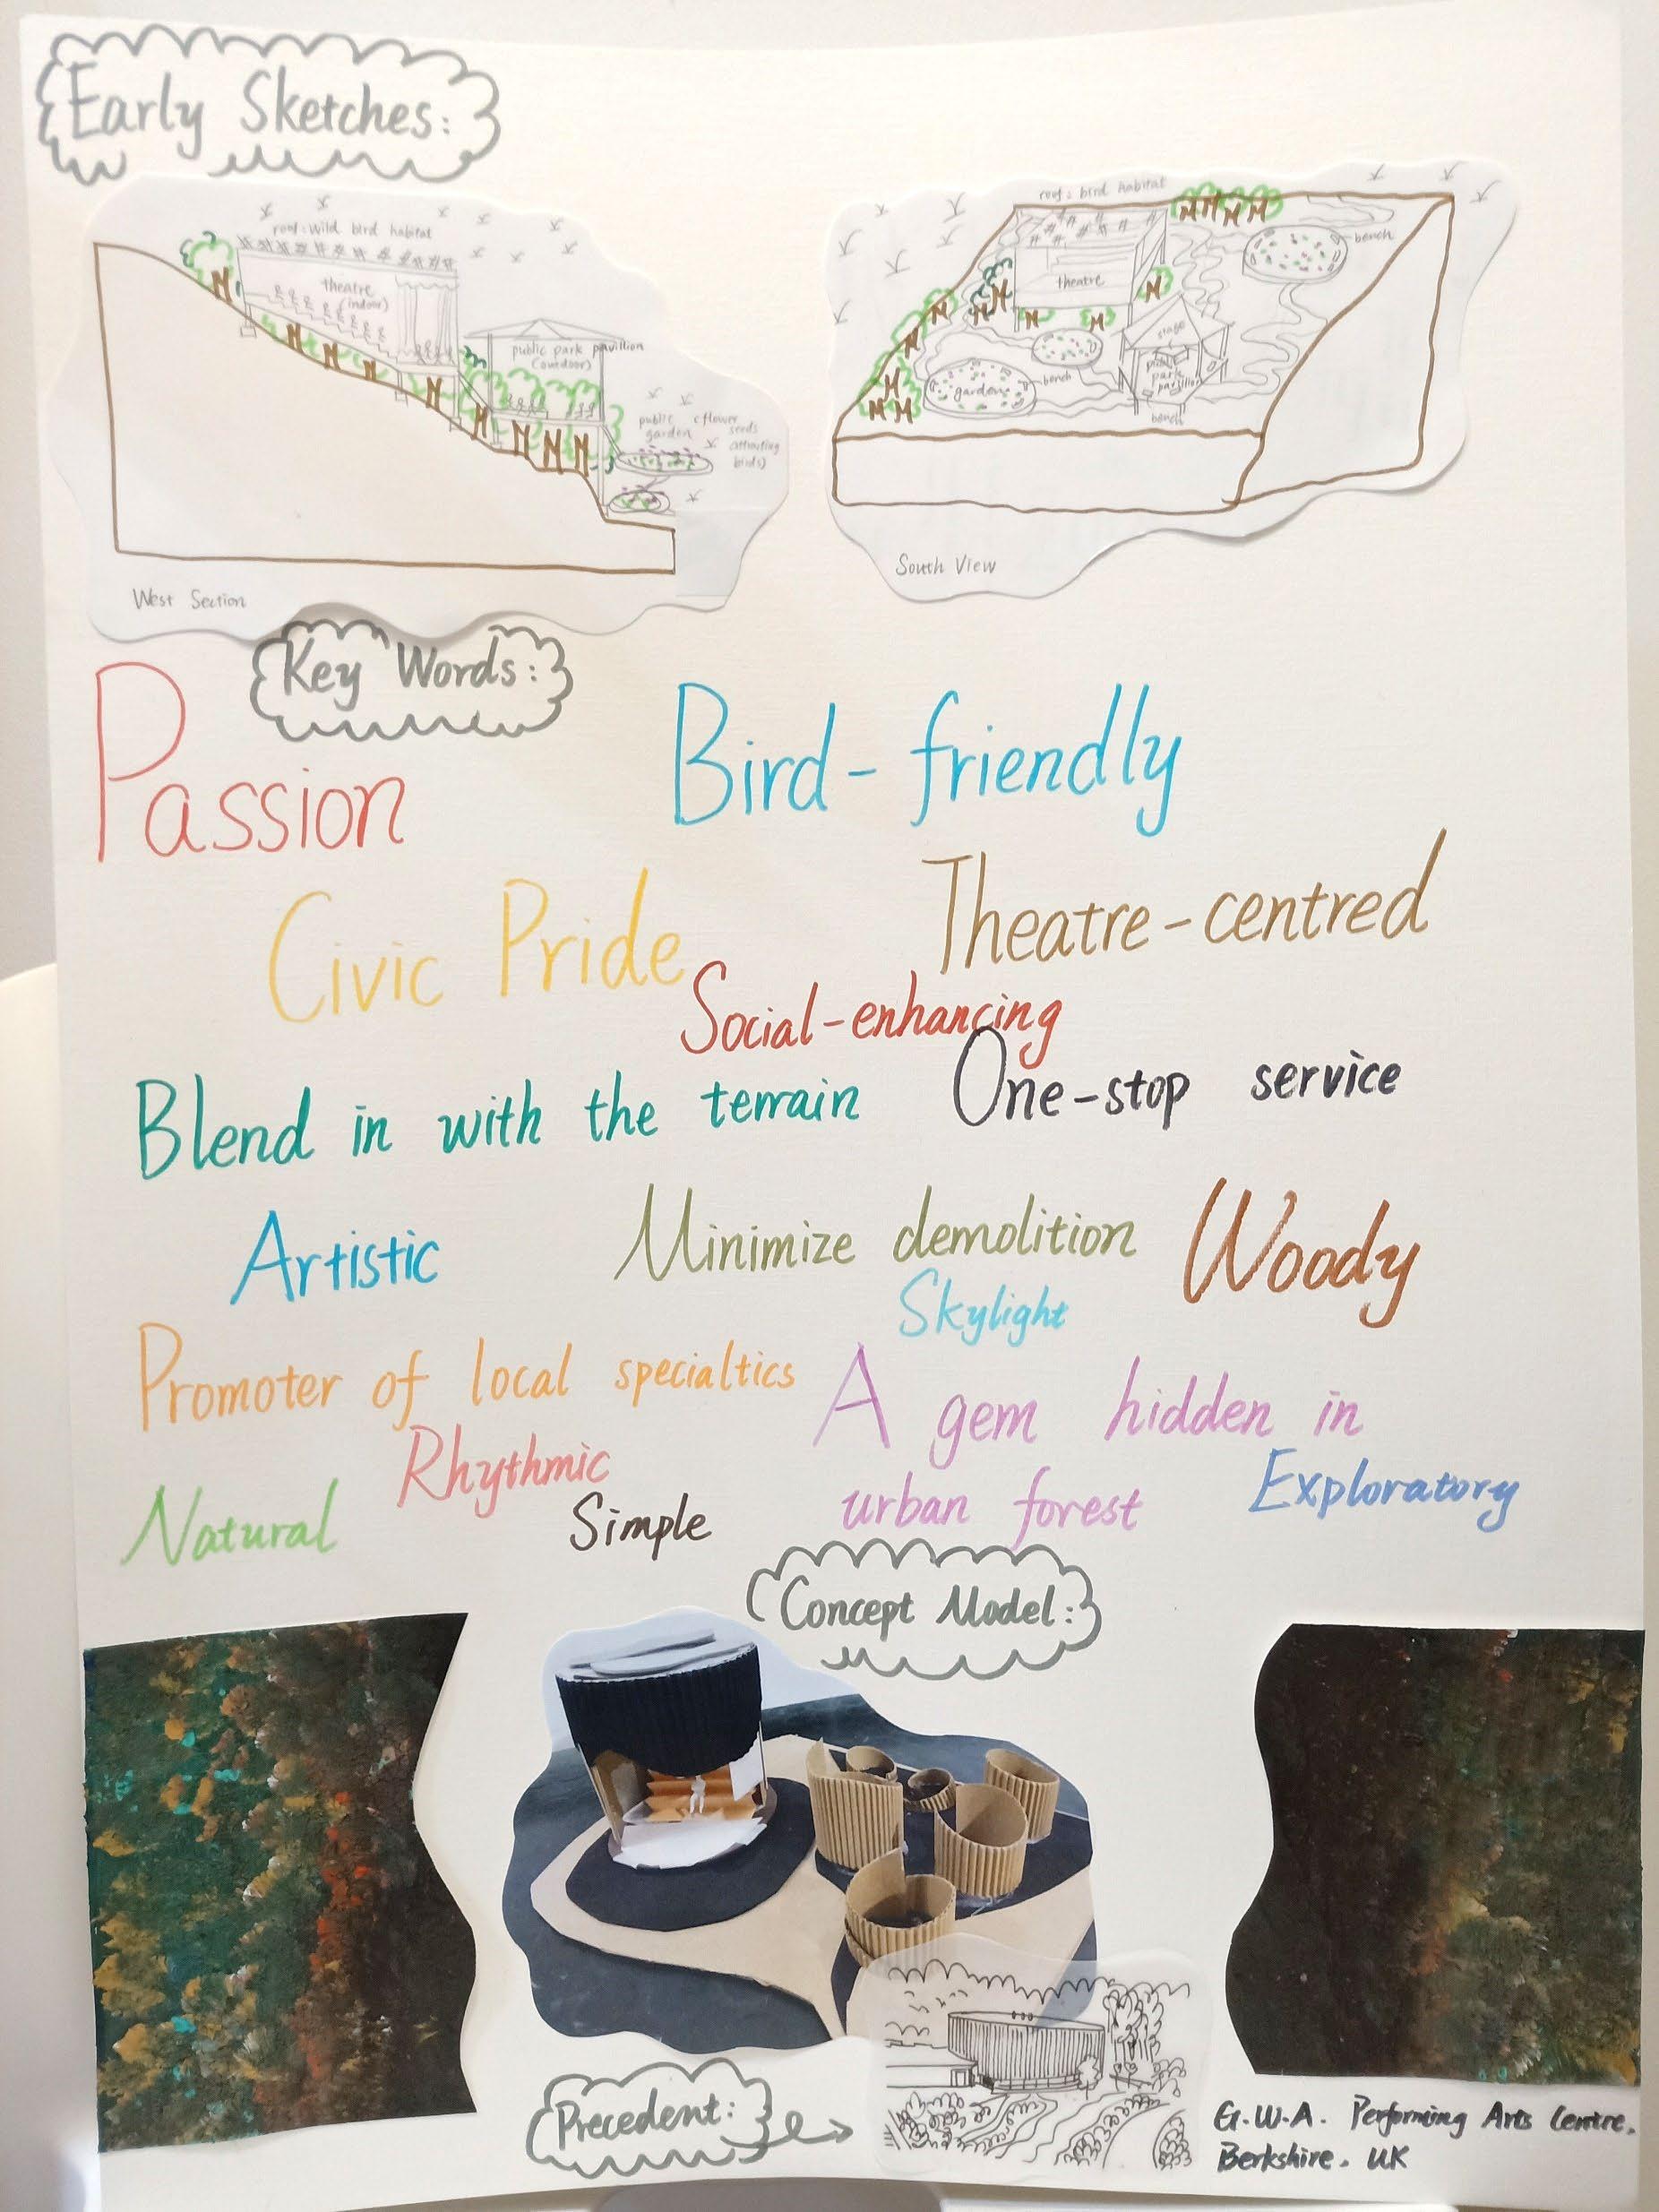 Early Sketches:
roof: wild bird habitat
theatre
(indoor)
public park pavillion
(outdoor)
public garden
(flower seeds attracting birds)
West Section
roof: bird habitat
bench
theatre
stage
public park pavillion
garden
bench
bench
South View
Key Words:
Passion
Bird-friendly
Civic Pride
Theatre-centred
Social-enhancing
Blend in with the terrain
One-stop service
Artistic
Minimize demolition
Woody
Skylight
Promoter of local specialtics
A gem hidden in
urban forest
Rhythmic
Natural
Simple
Exploratory
Concept Model:
Precedent:
G.W.A. Performing Arts Centre,
Berkshire, UK